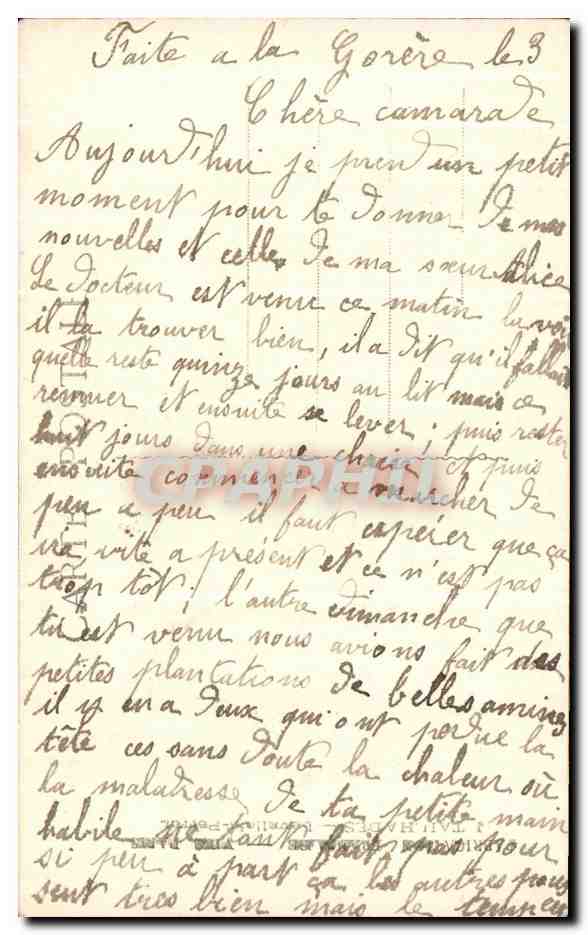 Faite a la Gorère le 3
Chère camarade
Aujourd'hui je prend un petit
moment pour te donner de mes
nouvelles et celle de ma sœur Alice
Le docteur est venu ce matin la voir
il la trouver bien, il a dit qu'il fallait
quelle reste quinze jours au lit mais ce
remuer et ensuite se lever; puis rester
huit jours dans une chaise et puis
ensuite commencer a marcher de
peu a peu il faut espérer que ça
ira vite a présent et ce n'est pas
trop tôt; l'autre dimanche que
tu est venu nous avions fait des
petites plantations de belles amines
il y en a deux qui ont perdue la
tête ces sans doute la chaleur où
la maladresse de ta petite main
habile ne tant fait pas pour
si peu à part ça les autres pous
sent tres bien mais le temps en
CARTE POSTALE
J. TAILHADES
CPAPHIL